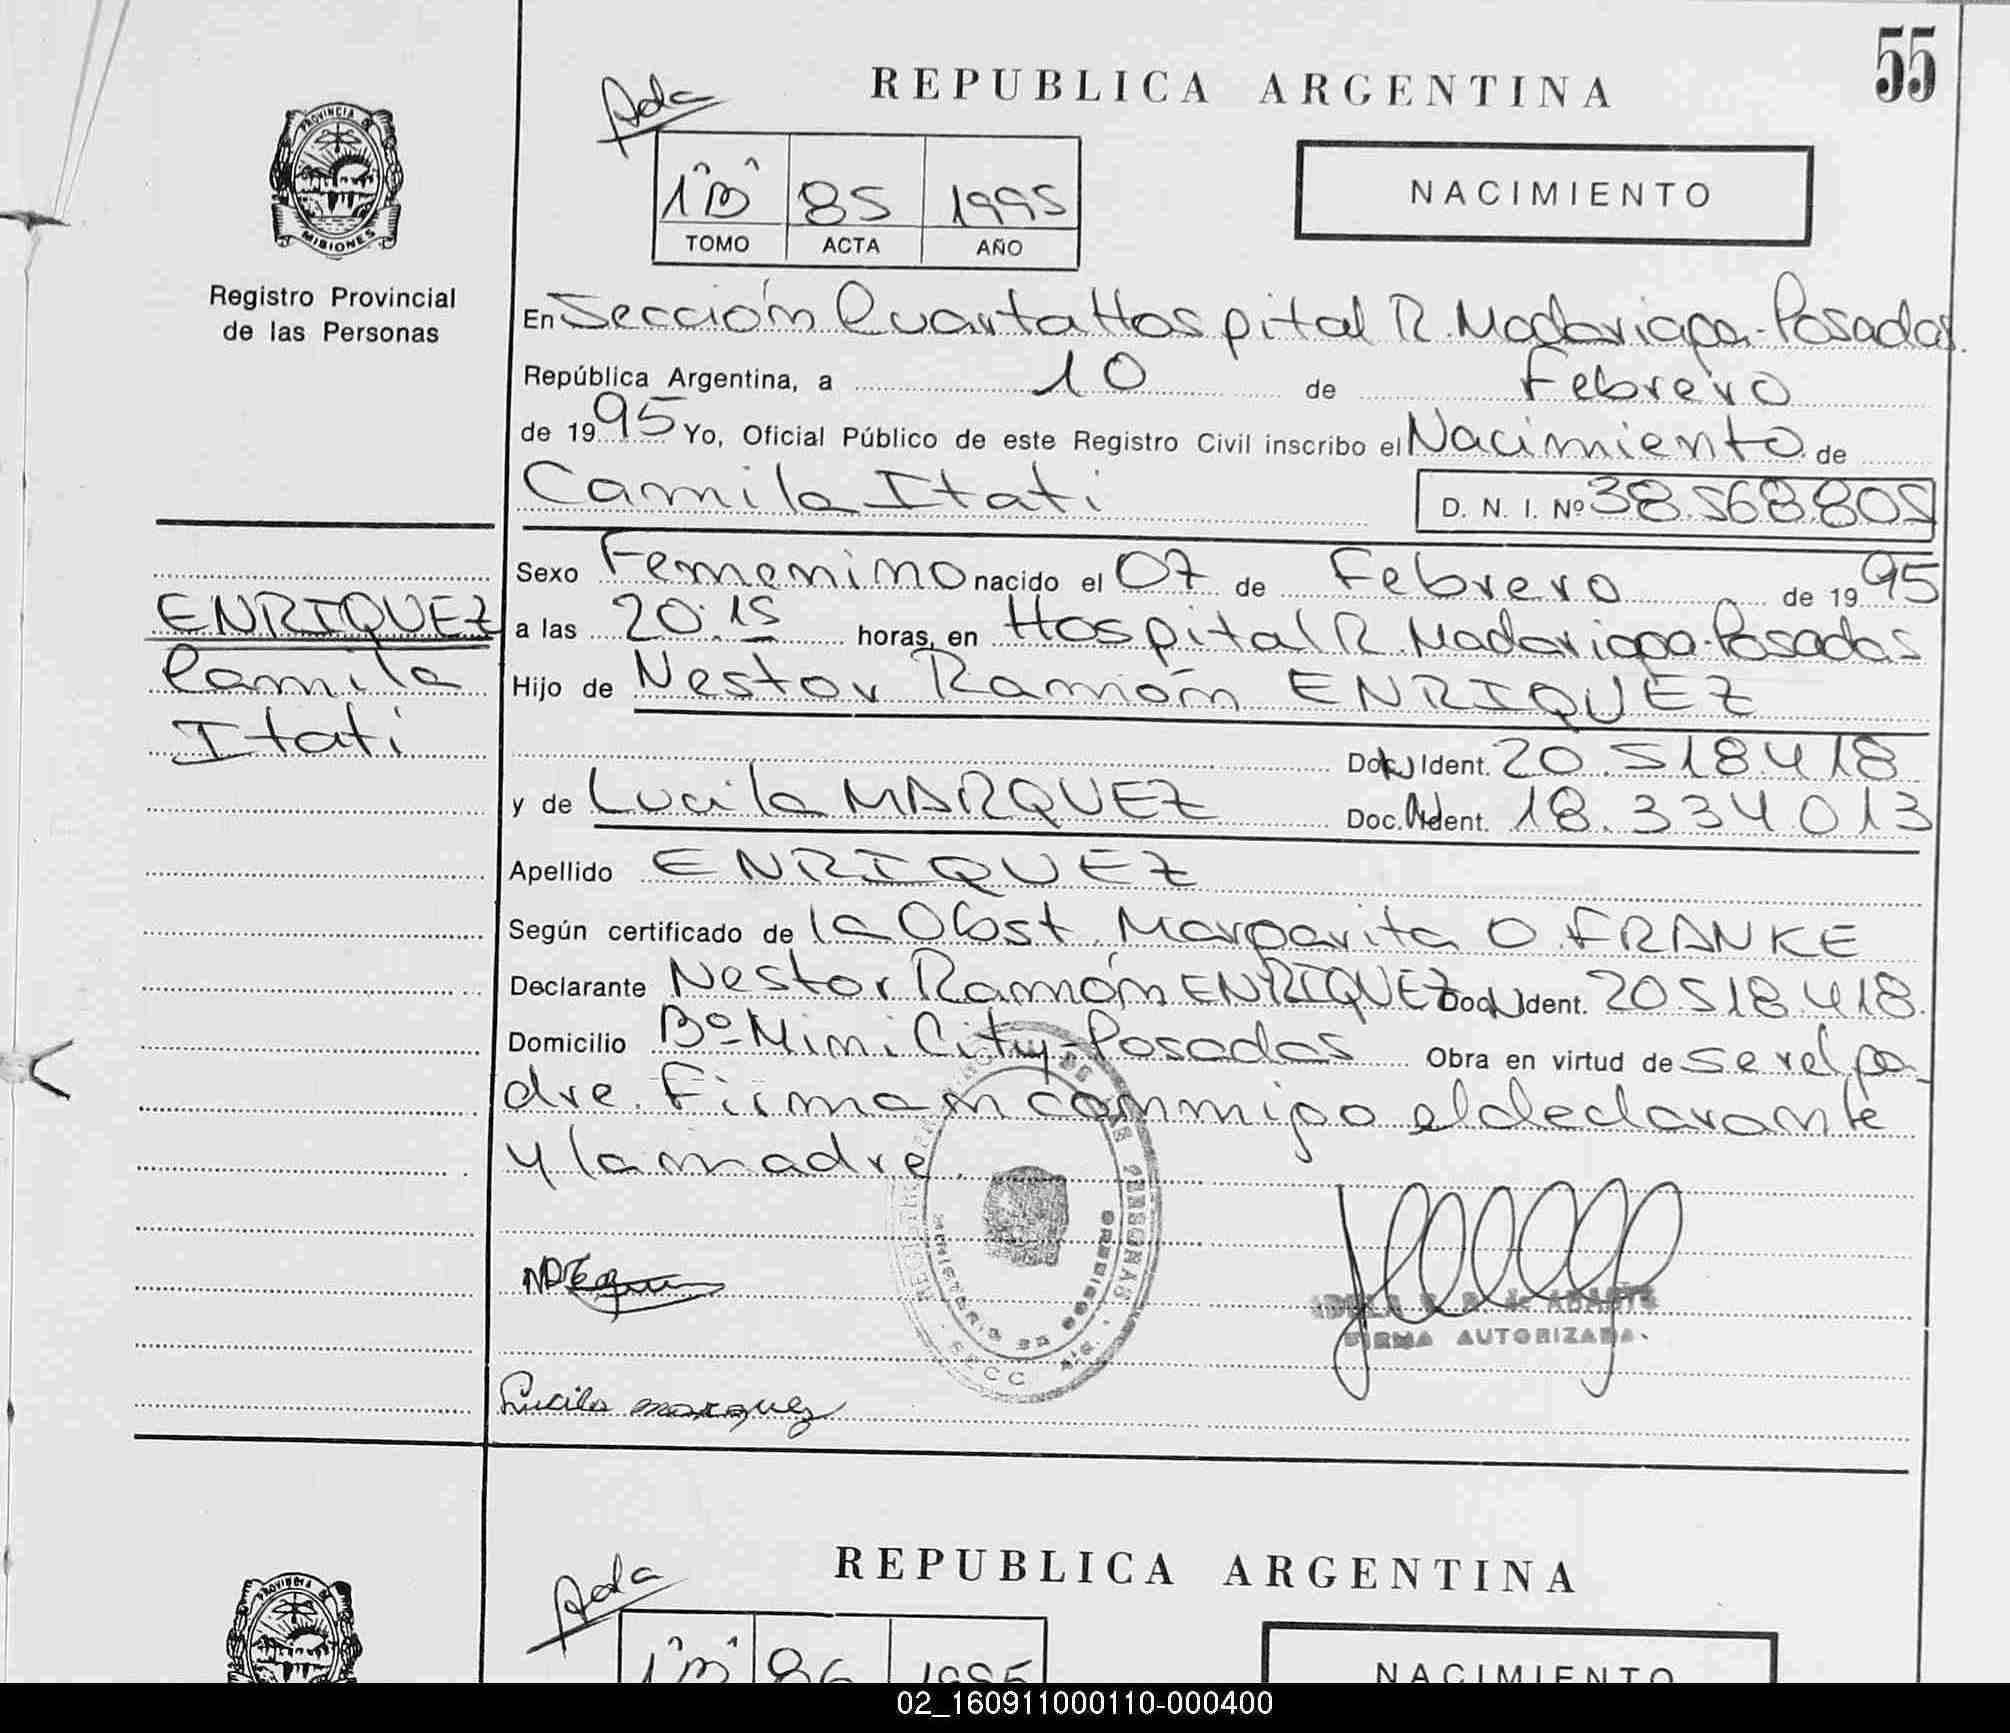 55
REPUBLICA ARGENTINA
Ada
1ºB 85 1995
TOMO ACTA AÑO
NACIMIENTO
PROVINCIA DE
MISIONES
Registro Provincial
de las Personas
En Sección Cuarta Hospital R. Madariaga-Posadas.
República Argentina, a 10 de Febrero
de 1995 Yo, Oficial Público de este Registro Civil inscribo el Nacimiento de
Camila Itati D. N. I. Nº 38.568.805
Sexo Femenino nacido el 07 de Febrero de 1995
ENRIQUEZ
a las 20:15 horas, en Hospital R. Madariaga-Posadas
Camila
Hijo de Nestor Ramón ENRIQUEZ
Itati
Doc. Ident. 20.518.418
y de Lucila MARQUEZ Doc. Ident. 18.334013
Apellido ENRIQUEZ
Según certificado de la Obst. Margarita O. FRANKE
Declarante Nestor Ramón ENRIQUEZ Doc. Ident. 20518.418.
Domicilio Bº Mini City-Posadas Obra en virtud de ser el pa-
dre. Firman conmigo el declarante
y la madre.
FIRMA AUTORIZADA.
Lucila marquez
REPUBLICA ARGENTINA
Ada
86 1995
NACIMIENTO
PROVINCIA DE
02_160911000110-000400